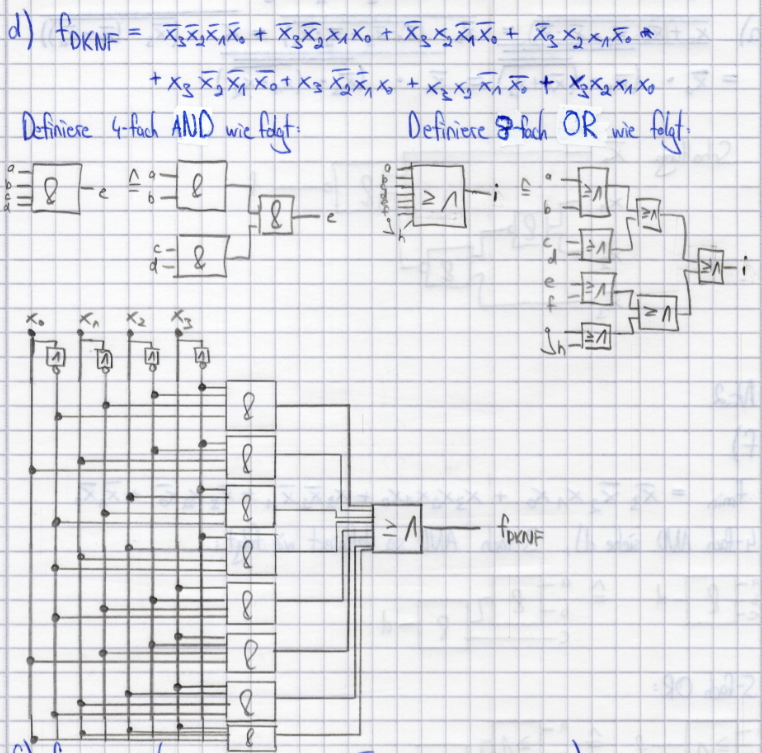 d) f_DKNF = x̄₃x̄₂x̄₁x̄₀ + x̄₃x̄₂x₁x₀ + x̄₃x₂x̄₁x̄₀ + x̄₃x₂x₁x̄₀
+ x₃x̄₂x̄₁x̄₀ + x₃x̄₂x̄₁x₀ + x₃x₂x̄₁x̄₀ + x₃x₂x₁x₀
Definiere 4-fach AND wie folgt: Definiere 8-fach OR wie folgt:
a b c d & e ≙ a b & c d & & e
≥1 i ≙ a b ≥1 c d ≥1 ≥1 e f ≥1 g h ≥1 ≥1 ≥1 i
x₀ x₁ x₂ x₃
1 1 1 1
&
&
&
&
&
&
&
&
≥1 f_DKNF